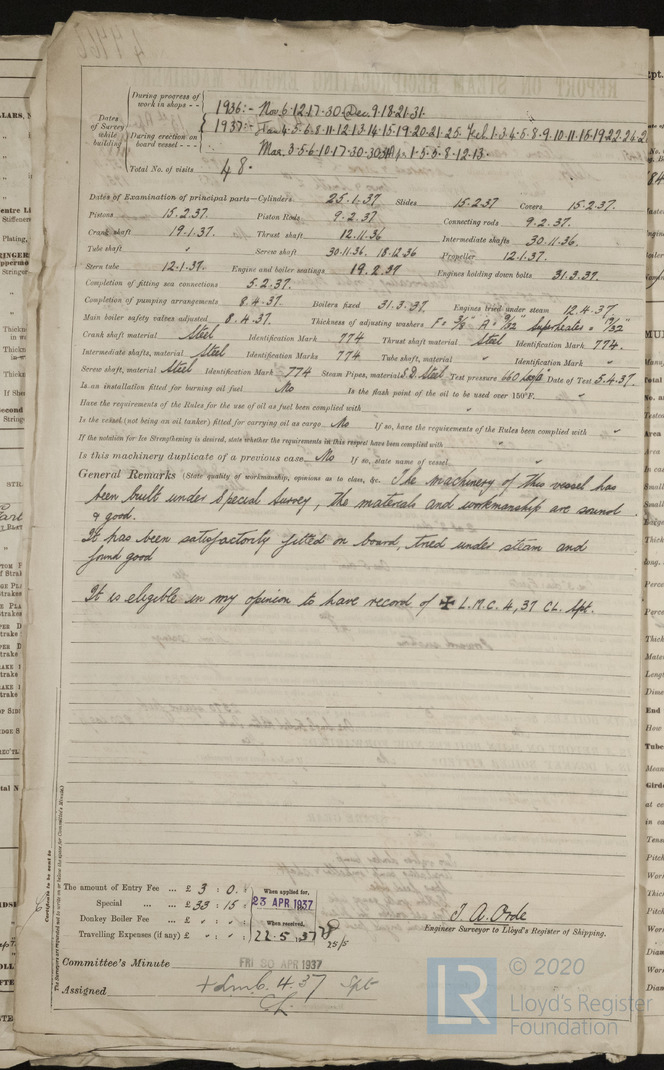 During progress of work in shops - -
1936:- Nov. 6.12.17.30 Dec. 9.18.21.31.
Dates of Survey while building
1937:- Jan. 4.5.6.8.11.12.13.14.15.19.20.21.25. Feb. 1.3.4.5.8.9.10.11.15.19.22.24.2
During erection on board vessel - - -
Mar. 3.5.6.10.17.30.30.31 Apr. 1.5.5.8.12.13.
Total No. of visits 48.
Dates of Examination of principal parts—Cylinders 25.1.37 Slides 15.2.37 Covers 15.2.37.
Pistons 15.2.37. Piston Rods 9.2.37 Connecting rods 9.2.37.
Crank shaft 19.1.37. Thrust shaft 12.11.36 Intermediate shafts 30.11.36.
Tube shaft " Screw shaft 30.11.36. 18.12.36 Propeller 12.1.37.
Stern tube 12.1.37. Engine and boiler seatings 19.2.37 Engines holding down bolts 31.3.37.
Completion of fitting sea connections 5.2.37.
Completion of pumping arrangements 8.4.37. Boilers fixed 31.3.37. Engines tried under steam 12.4.37
Main boiler safety valves adjusted 8.4.37. Thickness of adjusting washers
Crank shaft material Steel Identification Mark 774 Thrust shaft material Steel Identification Mark 774.
Intermediate shafts, material Steel Identification Marks 774 Tube shaft, material " Identification Mark "
Screw shaft, material Steel Identification Mark 774 Steam Pipes, material S.D. Steel Test pressure 660 Date of Test 5.4.37.
Is an installation fitted for burning oil fuel No Is the flash point of the oil to be used over 150°F. "
Have the requirements of the Rules for the use of oil as fuel been complied with "
Is the vessel (not being an oil tanker) fitted for carrying oil as cargo No If so, have the requirements of the Rules been complied with "
If the notation for Ice Strengthening is desired, state whether the requirements in this respect have been complied with "
Is this machinery duplicate of a previous case No If so, state name of vessel "
General Remarks (State quality of workmanship, opinions as to class, &c. The machinery of this vessel has
been built under Special Survey, the materials and workmanship are sound
& good.
It has been satisfactorily fitted on board, tried under steam and
found good
It is eligible in my opinion to have record of ✠ L.M.C. 4,37 CL. Spt.
Certificate to be sent to
(The Surveyors are requested not to write on or below the space for Committee's Minute.)
The amount of Entry Fee ... £ 3 : 0 :
Special ... ... £ 33 : 15 :
Donkey Boiler Fee ... £ " : " :
Travelling Expenses (if any) £ " : " :
When applied for,
23 APR 1937
When received,
22.5.37
25/5
J. A. Orde
Engineer Surveyor to Lloyd's Register of Shipping.
Committee's Minute FRI 30 APR 1937
Assigned + Lmc. 4.37 Spt
CL.
LR © 2020
Lloyd's Register
Foundation